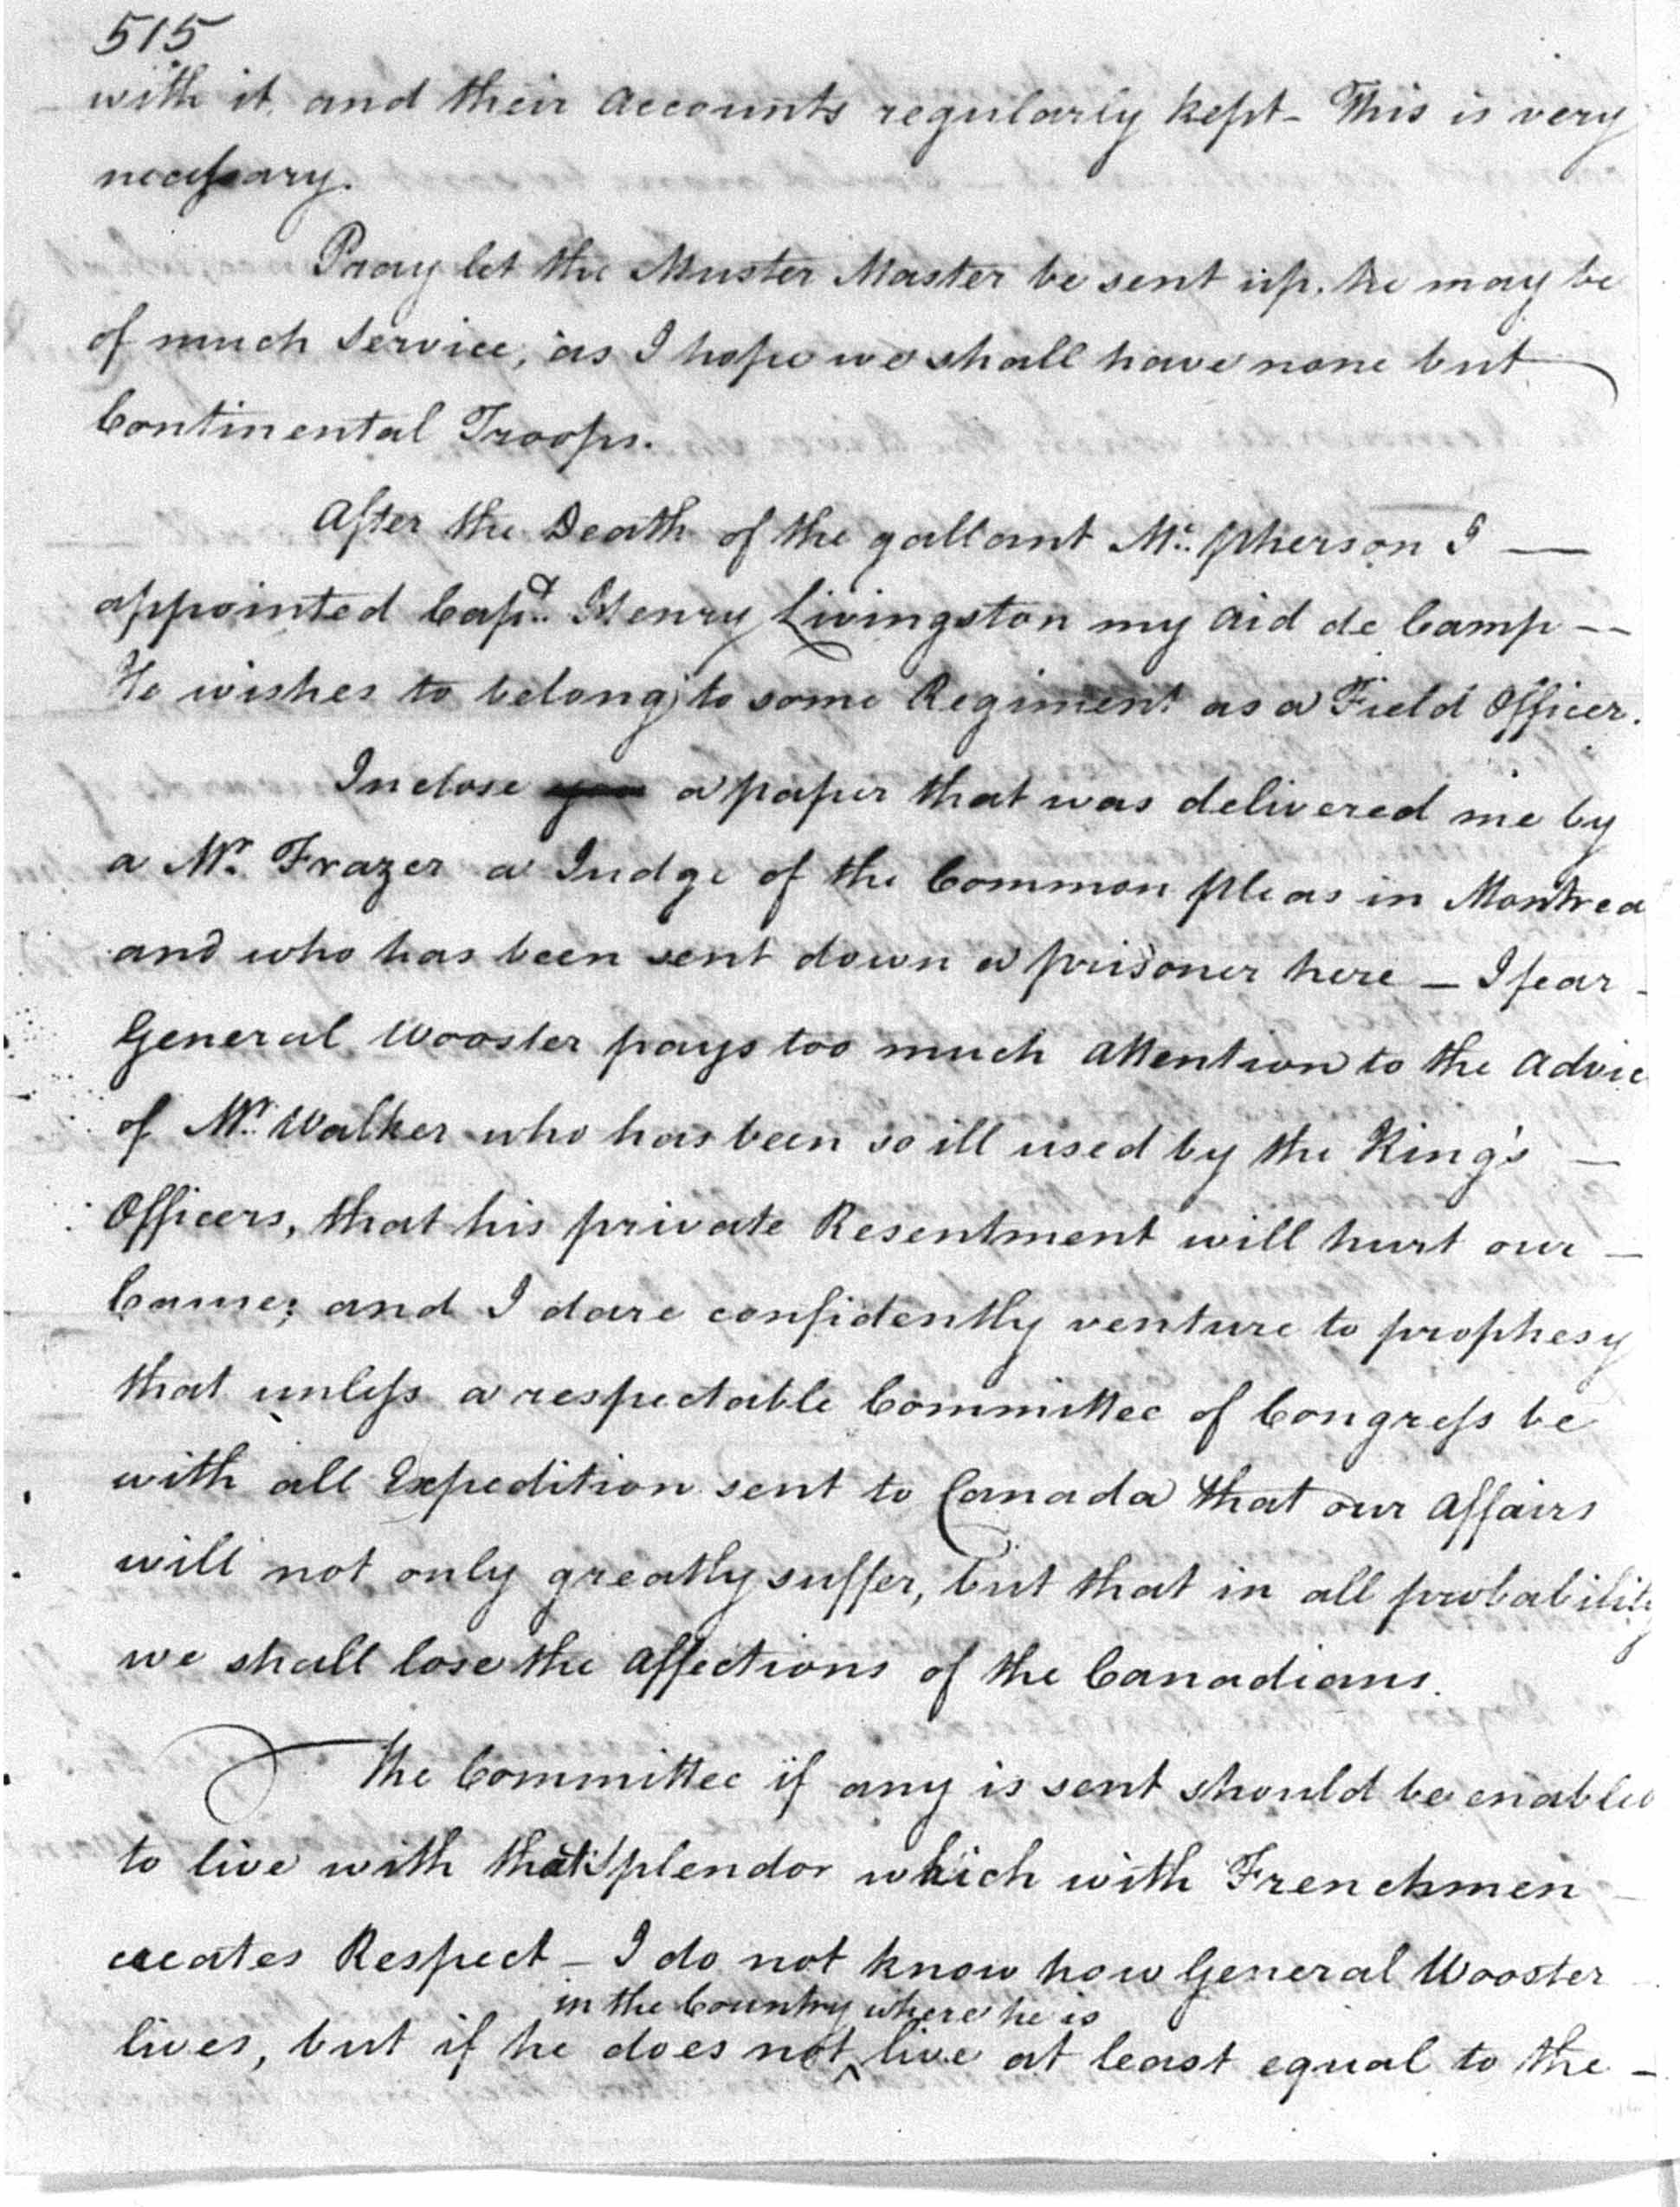 515
with it, and their Accounts regularly kept – This is very
necessary.
Pray let the Muster Master be sent up, he may be
of much Service, as I hope we shall have none but
Continental Troops.
After the Death of the gallant Mc. pherson I —
appointed Capt. Henry Livingston my Aid de Camp --
He wishes to belong to some Regiment as a Field Officer.
Inclose you a paper that was delivered me by
a Mr. Frazer a Judge of the Common pleas in Montrea
and who has been sent down a prisoner here – I fear -
General Wooster pays too much Attention to the Advic
of Mr. Walker who has been so ill used by the King's —
Officers, that his private Resentment will hurt our —
Cause; and I dare confidently venture to prophesy
that unless a respectable Committee of Congress be
with all Expedition sent to Canada that our Affairs
will not only greatly suffer, but that in all probability
we shall lose the Affections of the Canadians.
The Committee if any is sent should be enabled
to live with that Splendor which with Frenchmen
creates Respect – I do not know how General Wooster
in the Country where he is
lives, but if he does not ^ live at least equal to the –